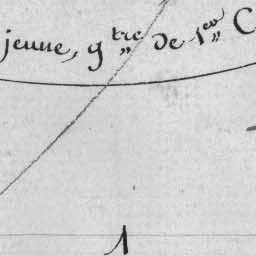 jeune, g.tre de 1.ere C
1